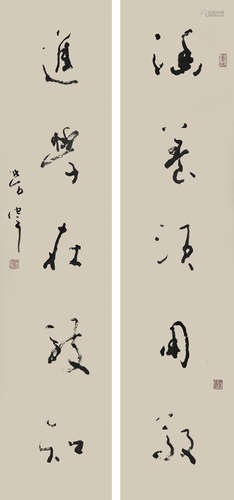 涵養須用敬
進學在致知